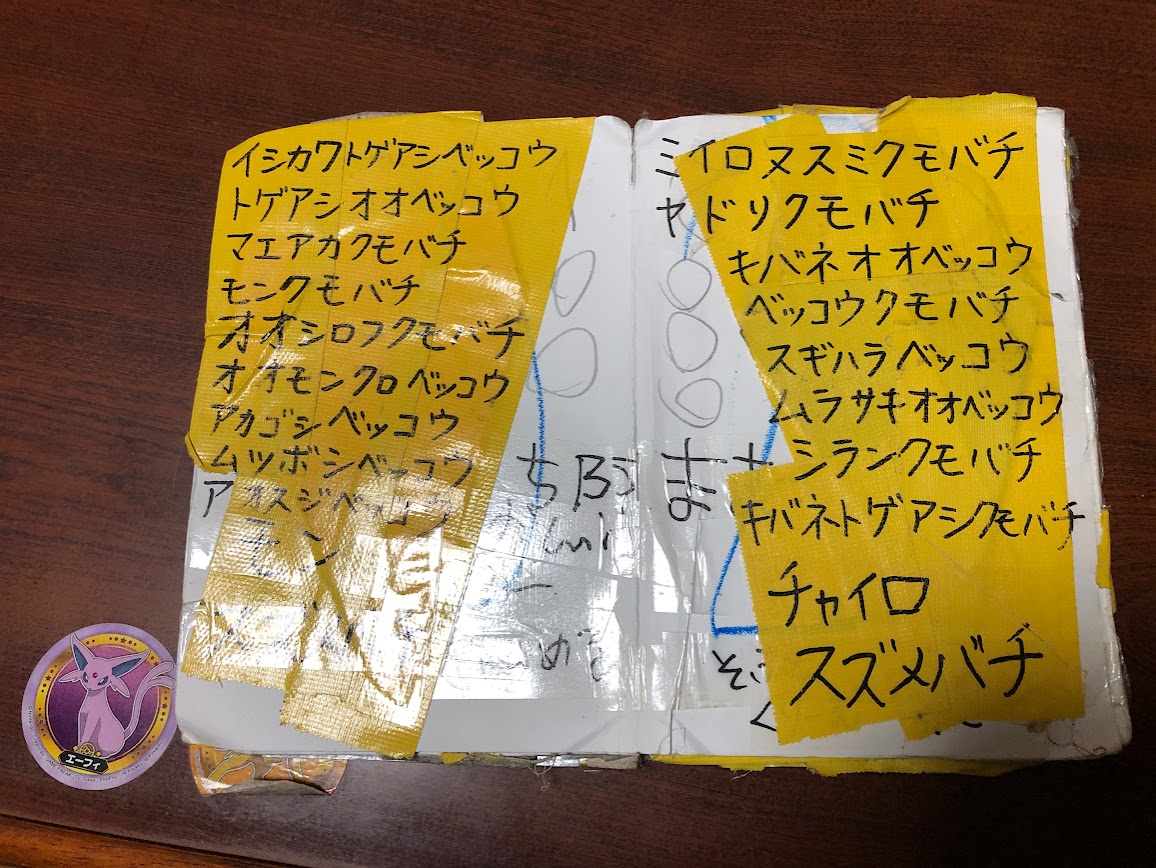 イシカワトゲアシベッコウ
トゲアシオオベッコウ
マエアカクモバチ
モンクモバチ
オオシロフクモバチ
オオモンクロベッコウ
アカゴシベッコウ
ムツボシベッコウ
アオスジベッコウ
モン
ミイロヌスミクモバチ
ヤドリクモバチ
キバネオオベッコウ
ベッコウクモバチ
スギハラベッコウ
ムラサキオオベッコウ
シランクモバチ
キバネトゲアシクモバチ
チャイロ
スズメバチ
エーフィ